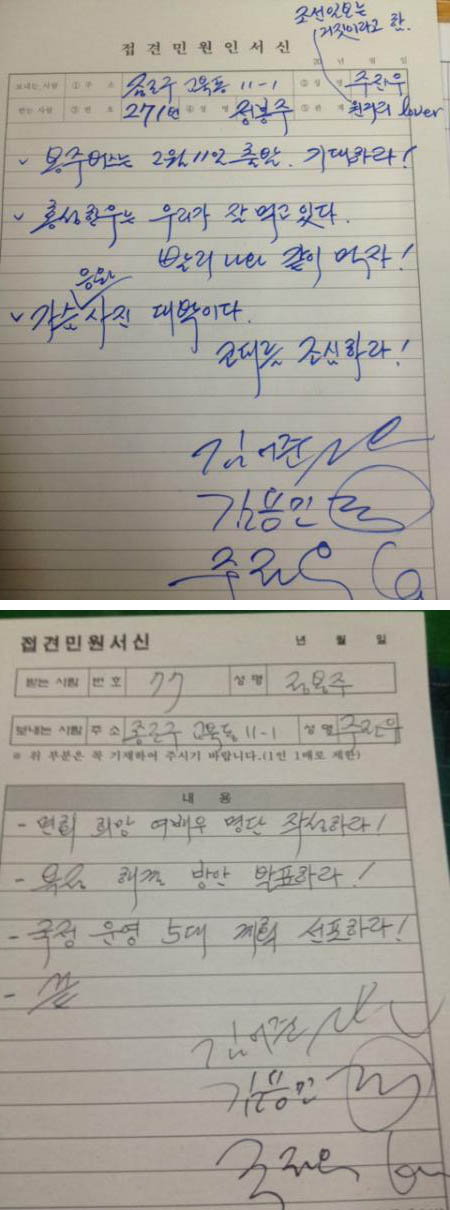 조선일보는
거짓이라고 함.
접견민원인서신
년 월 일
보내는 사람 ①주 소 종로구 교북동 11-1 ②성 명 주진우
받는 사람 ③번 호 271번 ④성 명 정봉주 ⑤관 계 lover
✓ 봉주버스는 2월 11일 출발. 기대하라!
✓ 홍성한우는 우리가 잘 먹고 있다.
빨리 나와 같이 먹자!
✓ 가슴 응원 사진 대박이다.
코피를 조심하라!
김어준
김용민
주진우
접견민원서신
년 월 일
받는 사람 번 호 77 성 명 정봉주
보내는사람 주 소 종로구 교북동 11-1 성 명 주진우
※ 위 부분은 꼭 기재하여 주시기 바랍니다.(1인 1매로 제한)
내 용
- 면회 희망 여배우 명단 작성하라!
- 욕정 해결 방안 발표하라!
- 국정 운영 5대 계획 선포하라!
- 끝
김어준
김용민
주진우